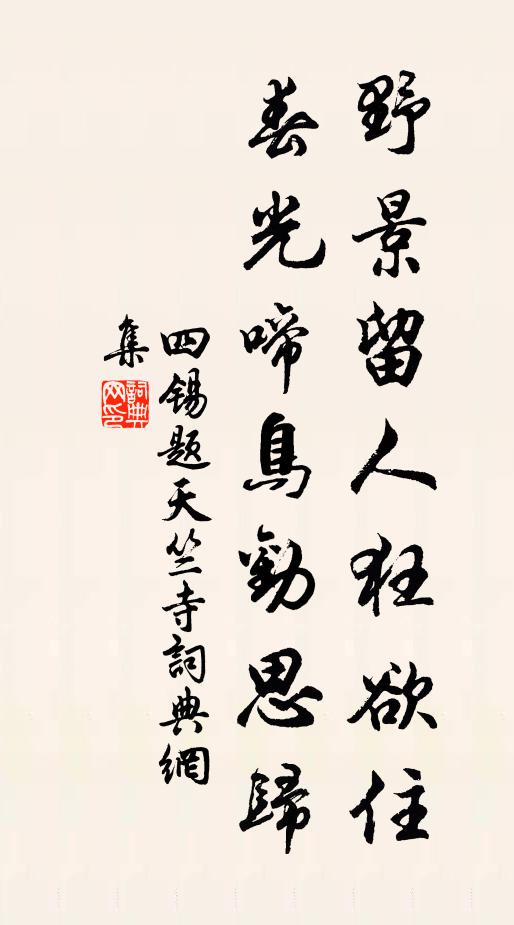 野景留人狂欲住
春光啼鳥勸思歸
四錫題天竺寺詞典網
集
詞典
网印